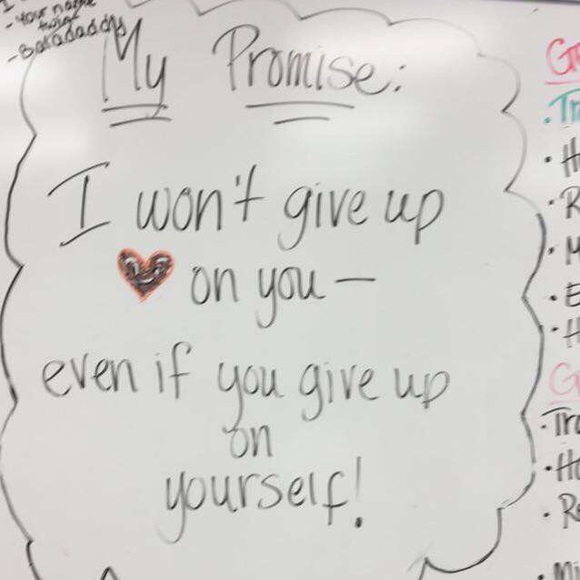 - Your name
twice
- Baladaddy
My Promise:
I won't give up
on you —
even if you give up
on
yourself!